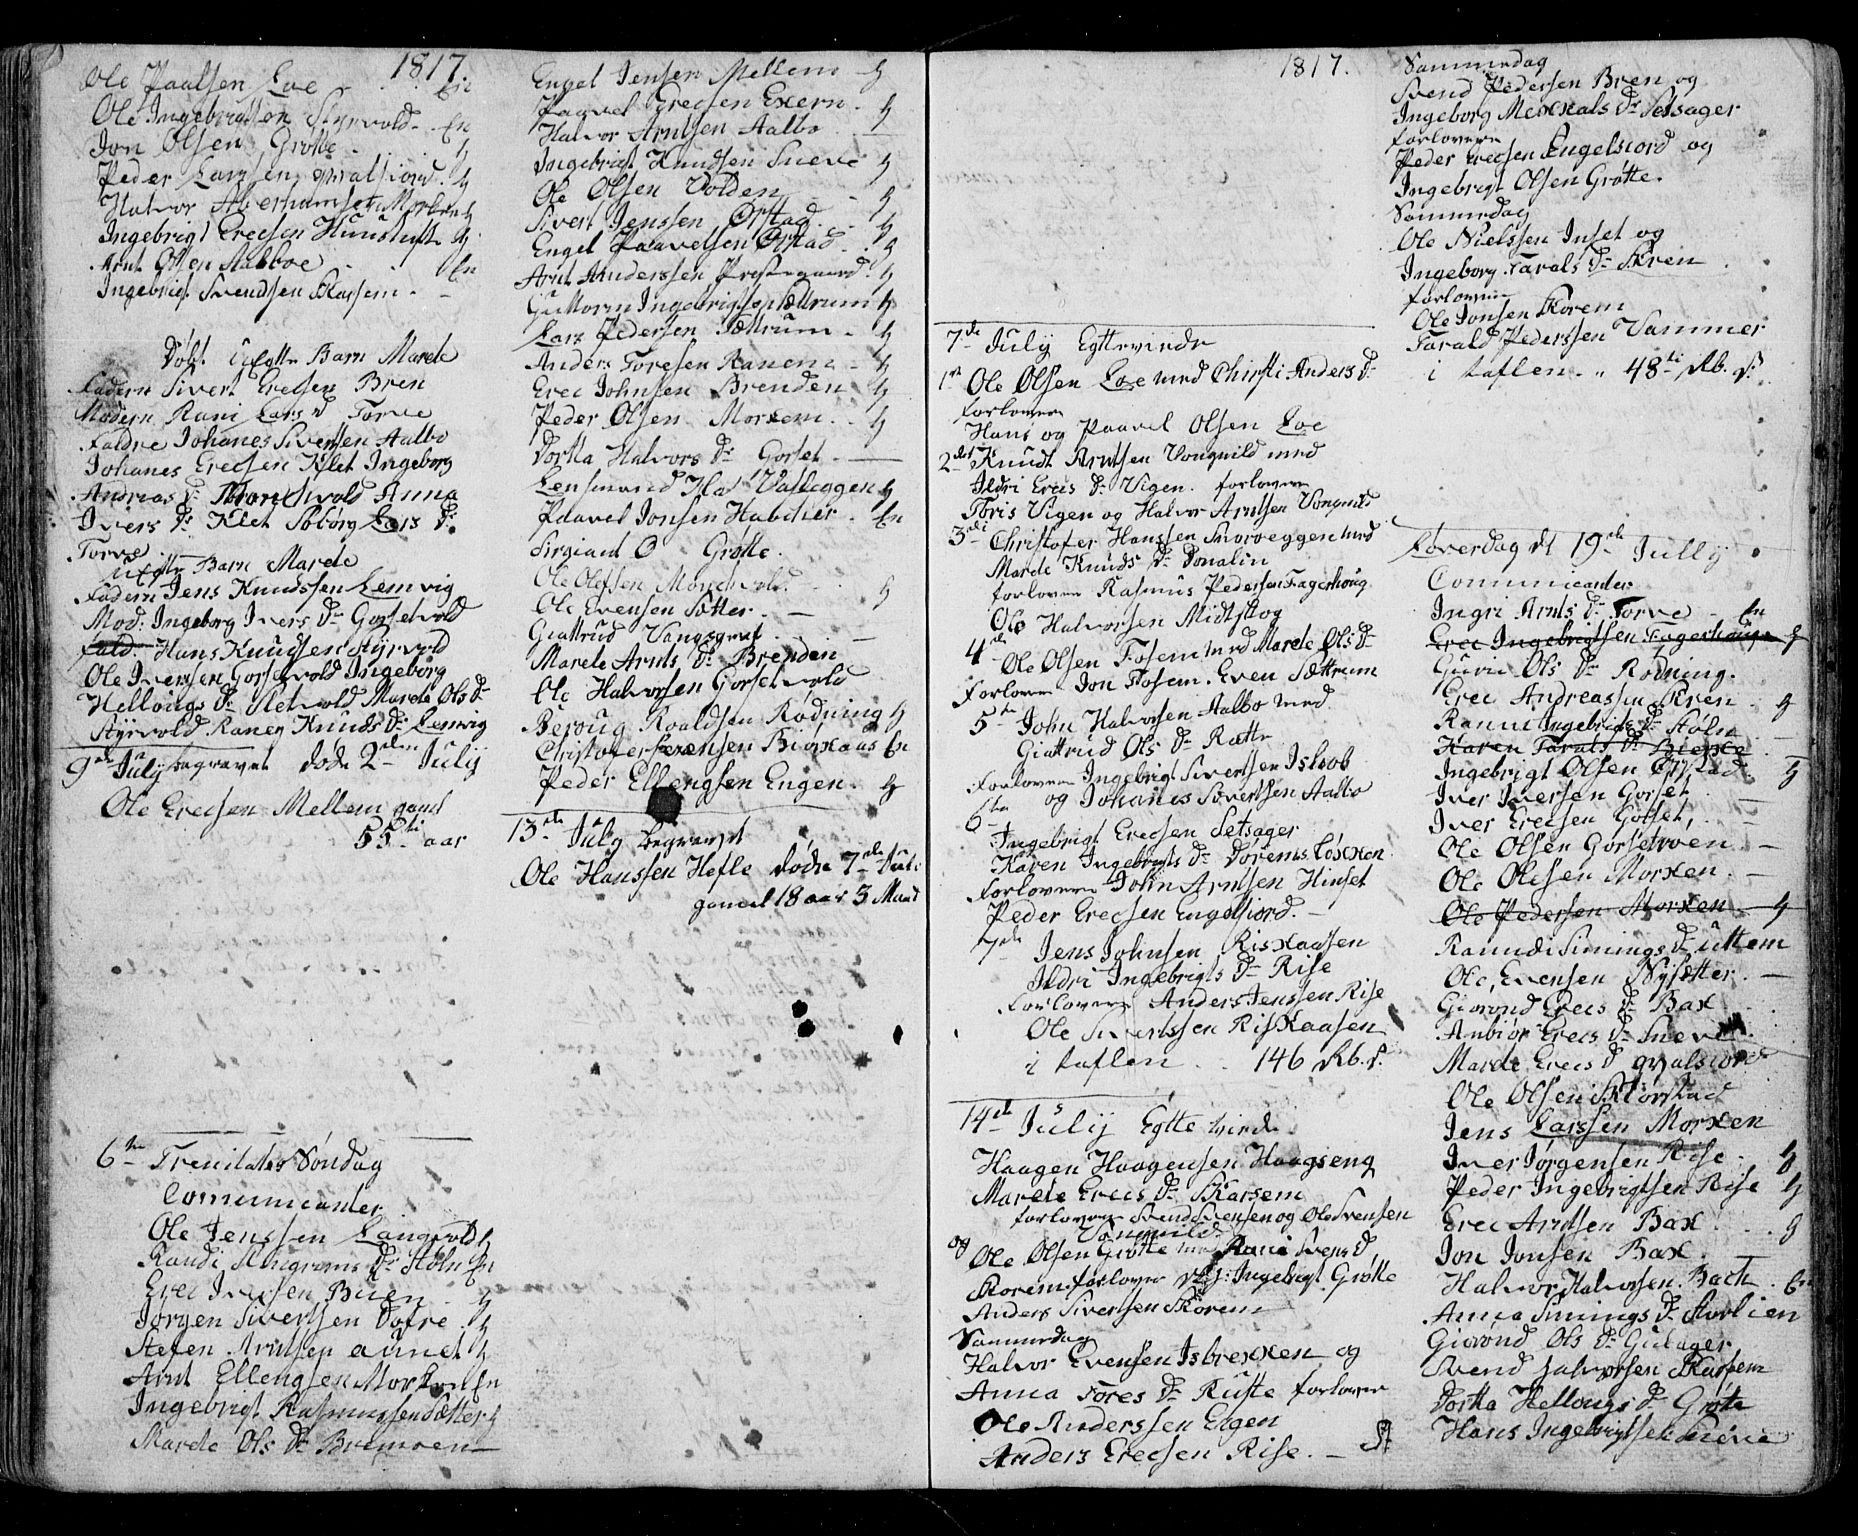 1817.
Ole Paalsen Loe - En
Ole Ingebrigtsen Styrvold - En
Jon Olsen Grøtte . g
Peder Larssen qvalsiord . g
Halvor Aberhamsen Morken g
Ingebrigt Erecsen g
Arnt Olsen Aalboe . . En
Ingebrigt Svendsen Skarsem . -
Døbt Uegtte Barn Marete
Fadern Sivert Erecsen Bren
Modern Rani Lars D. Torve
Faddre Johanes Sivertsen Aalbo
Johanes Erecsen Klet Ingeborg
Andreas D. Anna
Ivers D. Klet Solbørg Lars D.
Torve
Uegtte Barn Marete
Fadern Jens Knudssen Lemvig
Mod: Ingeborg Ivers D. Gorsetvold
Fald: Hans Knudsen Styrvold
Ole Iversen Gorsetvold Ingeborg
Hellongs D. Marete Ols D.
Styrvold Raney Knuds D. Lemvig
9de July begravet døde 2den July
Ole Erecsen Mellem gaml
55ti aar
6te Trenitates Søndag
Comunicanter
Ole Jenssen Langvold g
Randi Ingrams D. Støln En
Erec Iversen Buen . g
Jørgen Sivertsen Dovre . g
Stefen Arntsen aunet g
Arnt Ellengsen Morken En
Ingebrigt Rasmussen Sætter g
Marete Ols D. Bremoen -
Engel Jensen Mellem g
Paavel Erecsen Exern . g
Halvor Arntsen Aalbo . -
Ingebrigt Knudsen Sneve g
Ole Olsen Volden - g
Sivert Jenssen Ørstad . g
Engel Paavelsen Ørstad . g
Arnt Anderssen Prestegaard . g
Guttorm Ingebrigtsen Sættrum g
Lars Pedersen Sættrum - g
Anders Toresen Ranem - g
Erec Johnsen Brenden g
Peder Olsen Morkem . . g
Dortha Halvors D. Gorset . -
Lensmand Hal Vasleggen g
Paavel Jonsen Habetier . En
Sirgiant O Grøtte .
Ole Olefsen Morchvold . g
Ole Evensen Sætter . -
Giattrud Vangsgraf . -
Marete Arnts D. Brenden
Ole Halvorsen Gorsetvold
Beroug Roaldsen Rødning g
Christopfer Sørensen Biørkaas En
Peder Ellengsen Engen . g
13de July begravet
Ole Hanssen Hefle døde 7de July
gamel 18 aar 3 Maand
1817.
7de July Egttevirde
1ste Ole Olsen Loe med Chirsti Anders D.
forlovere
Hans og Paavel Olsen Loe
2det Knudt Arntsen Vongvild med
Ildri Erecs D. Vigen . forlovere
Toris Vigen og Halvor Arntsen Vongvild
3die Christofer Hanssen Snoreggen med
Marete Knuds D. Donalin
forlovere Rasmus Pedersen Fagerhoug
Ole Halvorsen Midtskog
4de Ole Olsen Fosem med Marete Ols D.
Forlovere Jon Fosem . Even Sættrum
5te John Halvorsen Aalbo med
Giattrud Ols D. Røtte
Forlovere Ingebrigt Sivertsen
og Johanes Sivertsen Aalbo
6te
Ingebrigt Erecsen Setsager
Karen Ingebrigts D. Dørems Løkken
Forlovere John Arntsen Hinset
Peder Erecsen Engelsiord . -
7de Jens Johnsen Riskaasen
Ildri Ingebrigts D. Rise
Forlovere Anders Jenssen Rise
Ole Sivertssen Riskaasen
i taflen . . 146 Rb. S.
14de July Egtte virde
Haagen Haagensen Haagseng
Marete Erecs D. Skarsem
forlovere Svend Svensen og Ole Svensen
Vongvild
og Ole Olsen Grøtte med Rani Svens D.
Skorem forlovere Ingebrigt Grøtte
Anders Sivertsen Skorem
Sammedag
Halvor Evensen Isbrekken og
Anna Tores D. Ruste forlover
Ole Anderssen Eegen
Anders Erecsen Rise . -
Sammedag
Svend Pedersen Bren og
Ingeborg Mekkals D. Setsager
forlovere
Peder Erecsen Engelsiord og
Ingebrigt Olsen Grøtte .
Sammedag
Ole Nielssen Inset og
Ingeborg Tarals D. Skren
forlovere
Ole Jonsen Skorem
Tarald Pederssen Vammer
i taflen . „ 48ti Rb. S.
Løverdag dt 19de Jully
Communicanter
Ingri Arnts D. Torve - En
Erec Ingebrigtsen Fagerhoug g
Guru Ols D. Rødning .
Erec Andreassen Skren . g
Ranni Ingebrigts D. Støln -
Karen Tarals D. Bierke
Ingebrigt Olsen Ørstad . g
Iver Iversen Gorset . -
Iver Erecsen Gorset, .
Ole Olsen Gorsetroen . -
Ole Olesen Morken . -
Ole Pedersen Morken g
Ranndi Simings D. Uttem
Ole Evensen Nysætter . -
Giørond Erecs D. Bax
Anbiør Erecs D. Sneve .
Marete Erecs D. qvalsiord
Ole Olsen Skiørstad
Jens Larssen Morken
Iver Jørgensen Rise . g
Peder Ingebrigtsen Rise g
Erec Arntsen Bax . . g
Jon Jonsen Bax . -
Halvor Halvorsen Bach . En
Anna Simings D. Storlien
Giørond Ols D. Gulager
Svend Halvorsen Skarsem
Dortha Hellongs D. Grøte
Hans Ingebrigtsen Sneve